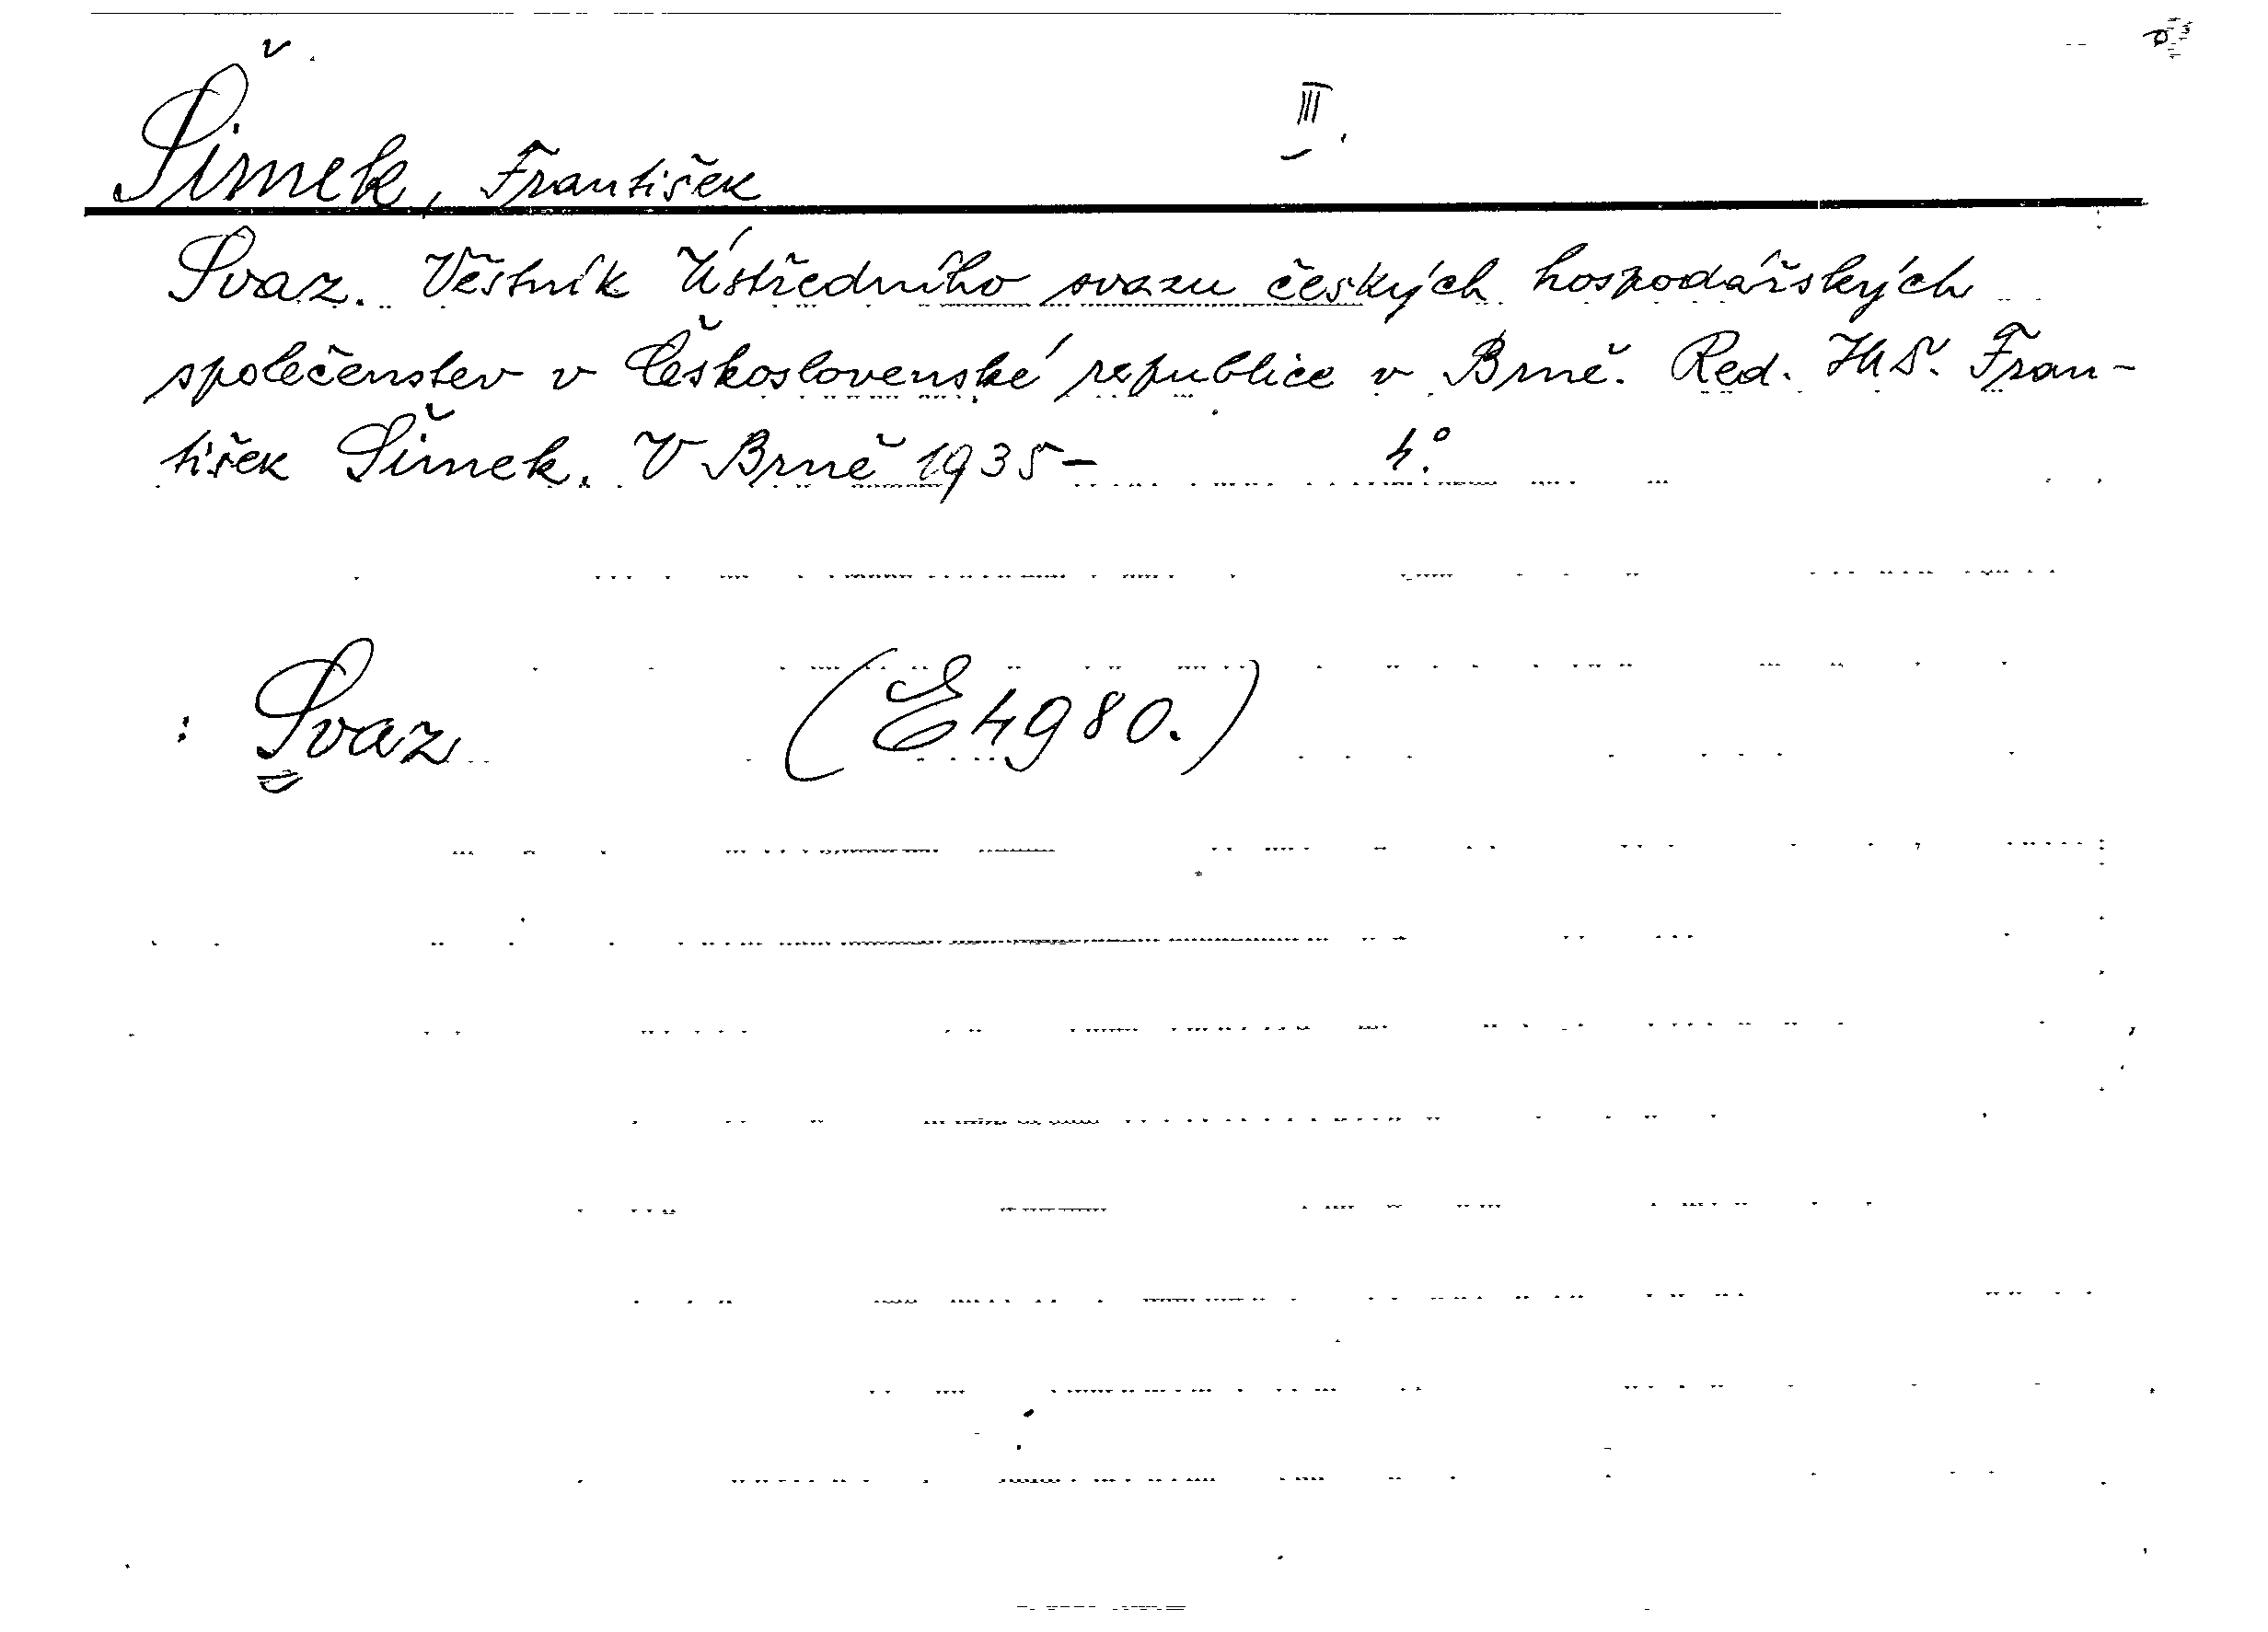 Šimek, František III.
Svaz. Věstník Ústředního svazu českých hospodářských
společenstev v Československé republice v Brně. Red. Fran-
tišek Šimek. V Brně 1935- 4°.
: Svaz (E 4980.)